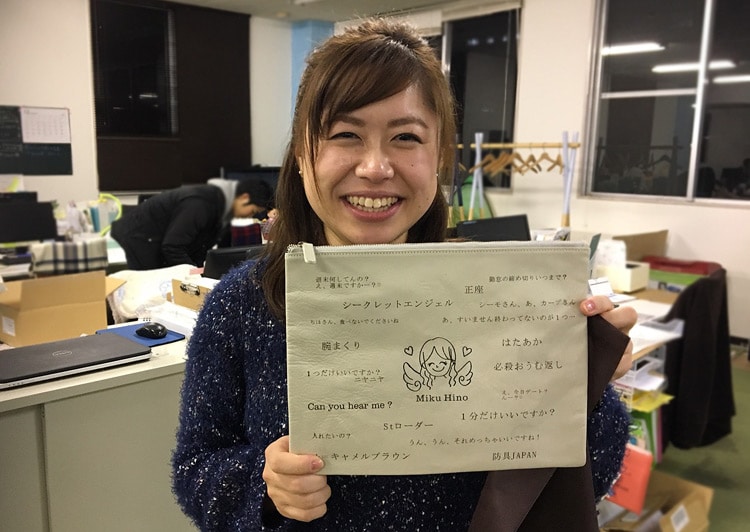 週末何してんの？
え、週末ですかー？
勤怠の締め切りいつまで？
正座
シークレットエンジェル
シーモさん、あ、カーブさん
食べないでくださいね
あ、すいません終わってないのが1つ…
腕まくり
はたあか
1つだけいいですか？
ニヤニヤ
必殺おうむ返し
Miku Hino
Can you hear me ?
え、今日デート？
1分だけいいですか？
Stローダー
入れたいの？
うん、うん、それめっちゃいいですね！
キャメルブラウン
防具JAPAN